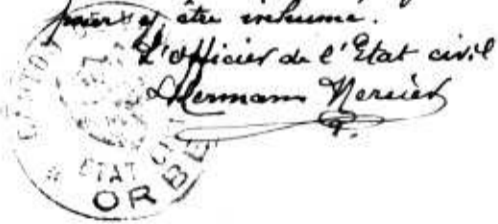 pour y être inhumé.
L'officier de l'Etat civil
Hermann Mercier
ETAT CI
ORBE